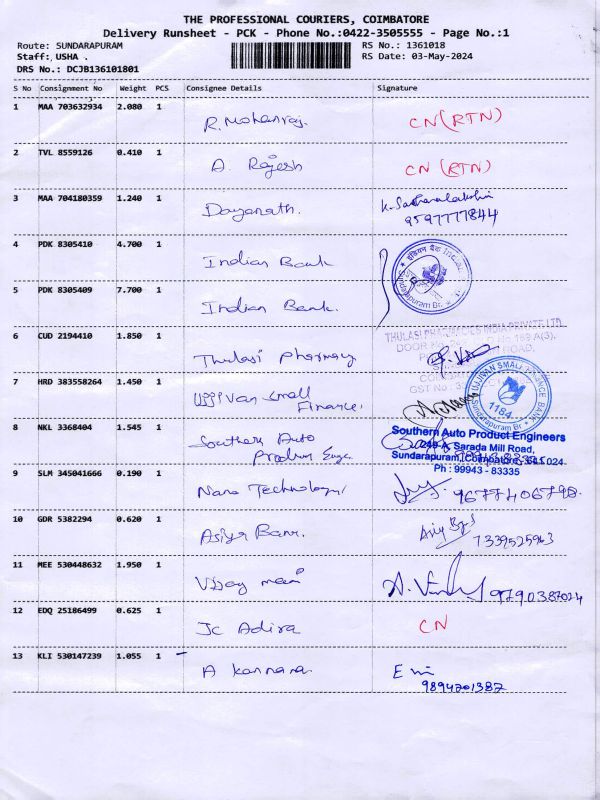 THE PROFESSIONAL COURIERS, COIMBATORE
Delivery Runsheet - PCK - Phone No.:0422-3505555 - Page No.:1
Route: SUNDARAPURAM
RS No.: 1361018
Staff: USHA .
RS Date: 03-May-2024
DRS No.: DCJB136101801
S No Consignment No Weight PCS Consignee Details Signature
1 MAA 703632934 2.080 1 R. Mohanraj. CN (RTN)
2 TVL 8559126 0.410 1 A. Rajesh CN (RTN)
3 MAA 704180359 1.240 1 Dayanath.
9597777844
4 PDK 8305410 4.700 1 Indian Bank
5 PDK 8305409 7.700 1 Indian Bank.
Sundarapuram Br.
6 CUD 2194410 1.850 1 Thulasi Pharmacy
THULASI PHARMACIES INDIA PRIVATE LTD
7 HRD 383558264 1.450 1 Ujjivan Small
Finance.
UJJIVAN SMALL FINANCE BANK
1184
Sundarapuram Br
8 NKL 3368404 1.545 1 Southern Auto
Southern Auto Product Engineers
Sarada Mill Road,
Sundarapuram, Coimbatore - 641 024
Ph : 99943 - 83335
9 SLM 345041666 0.190 1 Nano 9677406798.
10 GDR 5382294 0.620 1 7339525963
11 MEE 530448632 1.950 1 Vijay mani 9790387024
12 EDQ 25186499 0.625 1 Jc Adira CN
13 KLI 530147239 1.055 1 A Kannana
9894201387